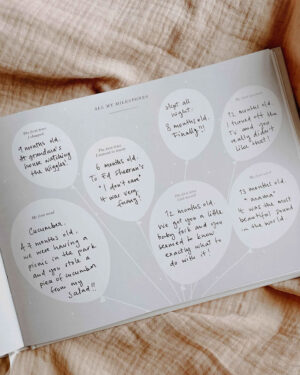 ALL MY MILESTONES
The first time
I clapped
9 months old.
At grandma's
house watching
the Wiggles.
The first time
6 months old.
To Ed Sheeran's
"I don't care"
It was very
funny!
Slept all
night:
8 months old.
Finally!!!
12 months old.
I turned off the
TV and you
really didn't
like that!
My first food
Cucumber.
4.5 months old.
We were having a
picnic in the park
and you stole a
piece of cucumber
from my
salad!!
The first time
12 months old.
We got you a little
baby fork and you
seemed to know
exactly what to
do with it!
My first word
13 months old.
"mama"
It was the most
beautiful sound
in the world